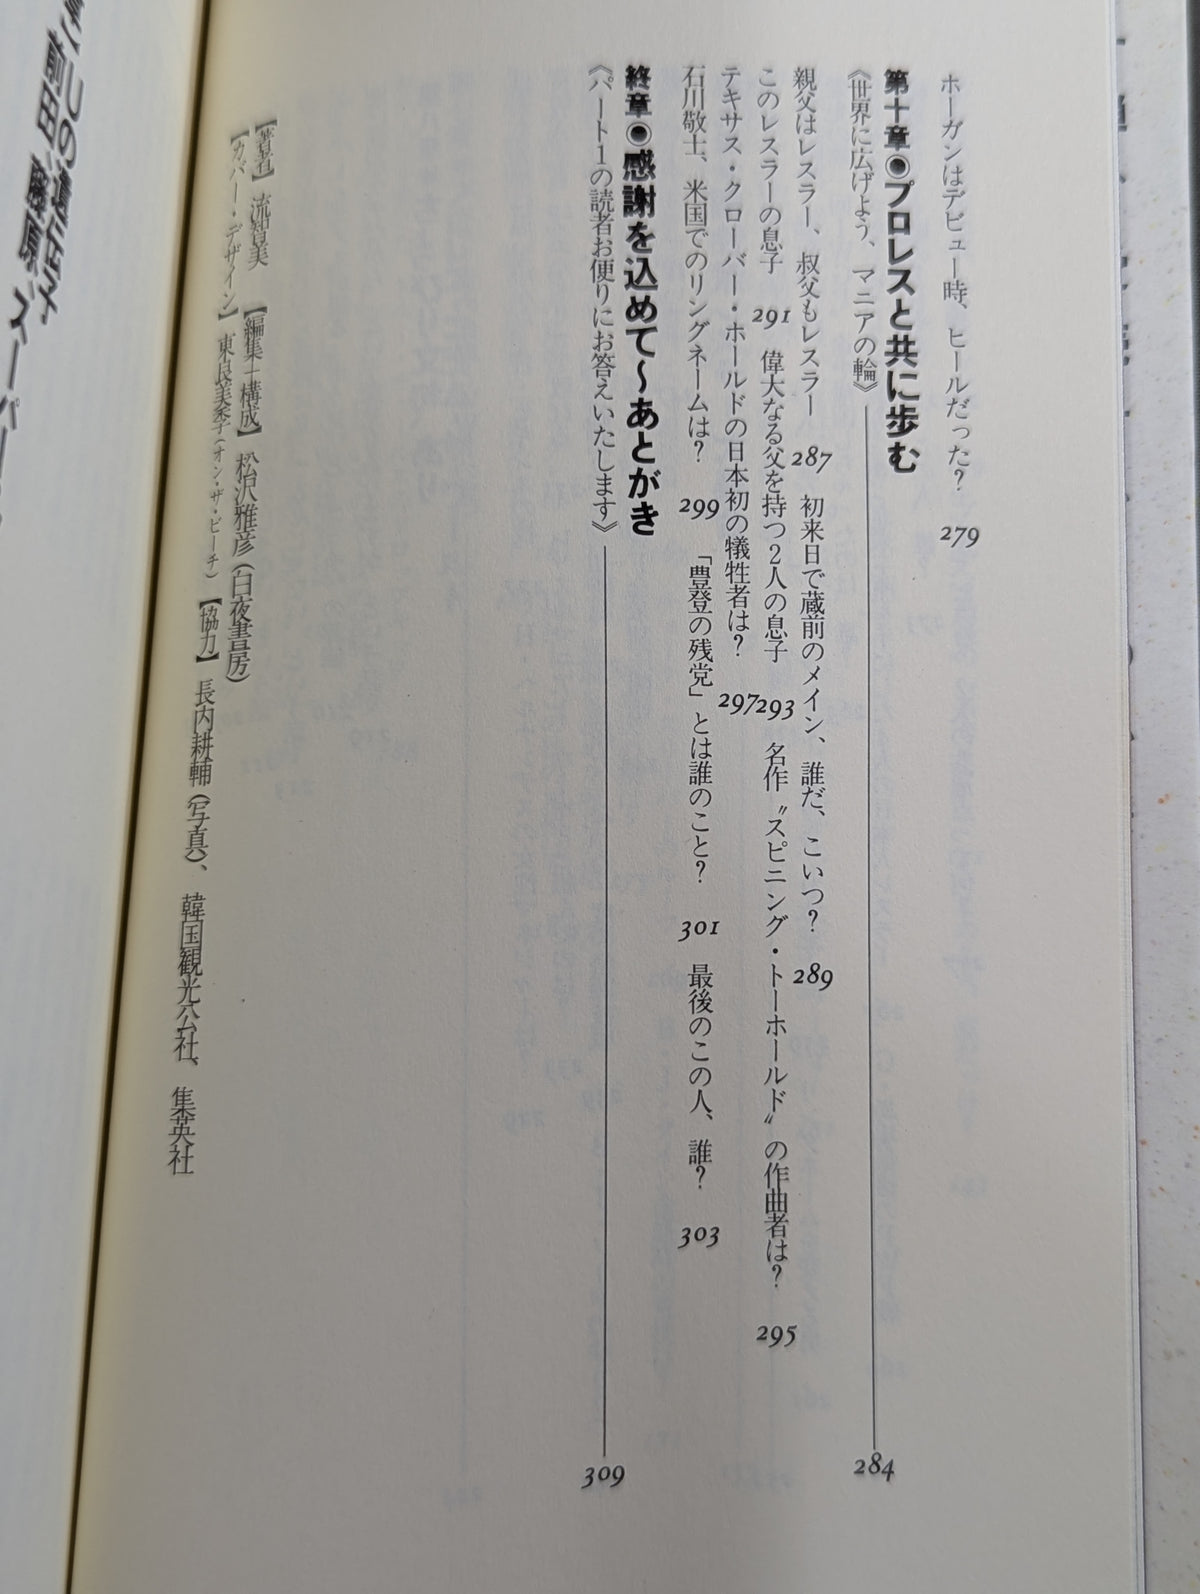 ホーガンはデビュー時、ヒールだった? 279
第十章◉プロレスと共に歩む
《世界に広げよう、マニアの輪》 284
親父はレスラー、叔父もレスラー 287 初来日で蔵前のメイン、誰だ、こいつ? 289
このレスラーの息子 291 偉大なる父を持つ2人の息子 293 名作〝スピニング・トーホールド〟の作曲者は? 295
テキサス・クローバー・ホールドの日本初の犠牲者は? 297
石川敬士、米国でのリングネームは? 299 「豊登の残党」とは誰のこと? 301 最後のこの人、誰? 303
終章◉感謝を込めて〜あとがき
《パート1の読者お便りにお答えいたします》 309
【著者】流智美 【編集+構成】松沢雅彦(白夜書房)
【カバー・デザイン】東良美季(オン・ザ・ビーチ)【協力】長内耕輔(写真)、韓国観光公社、集英社
の遺伝子
前田、藤原、スーパー